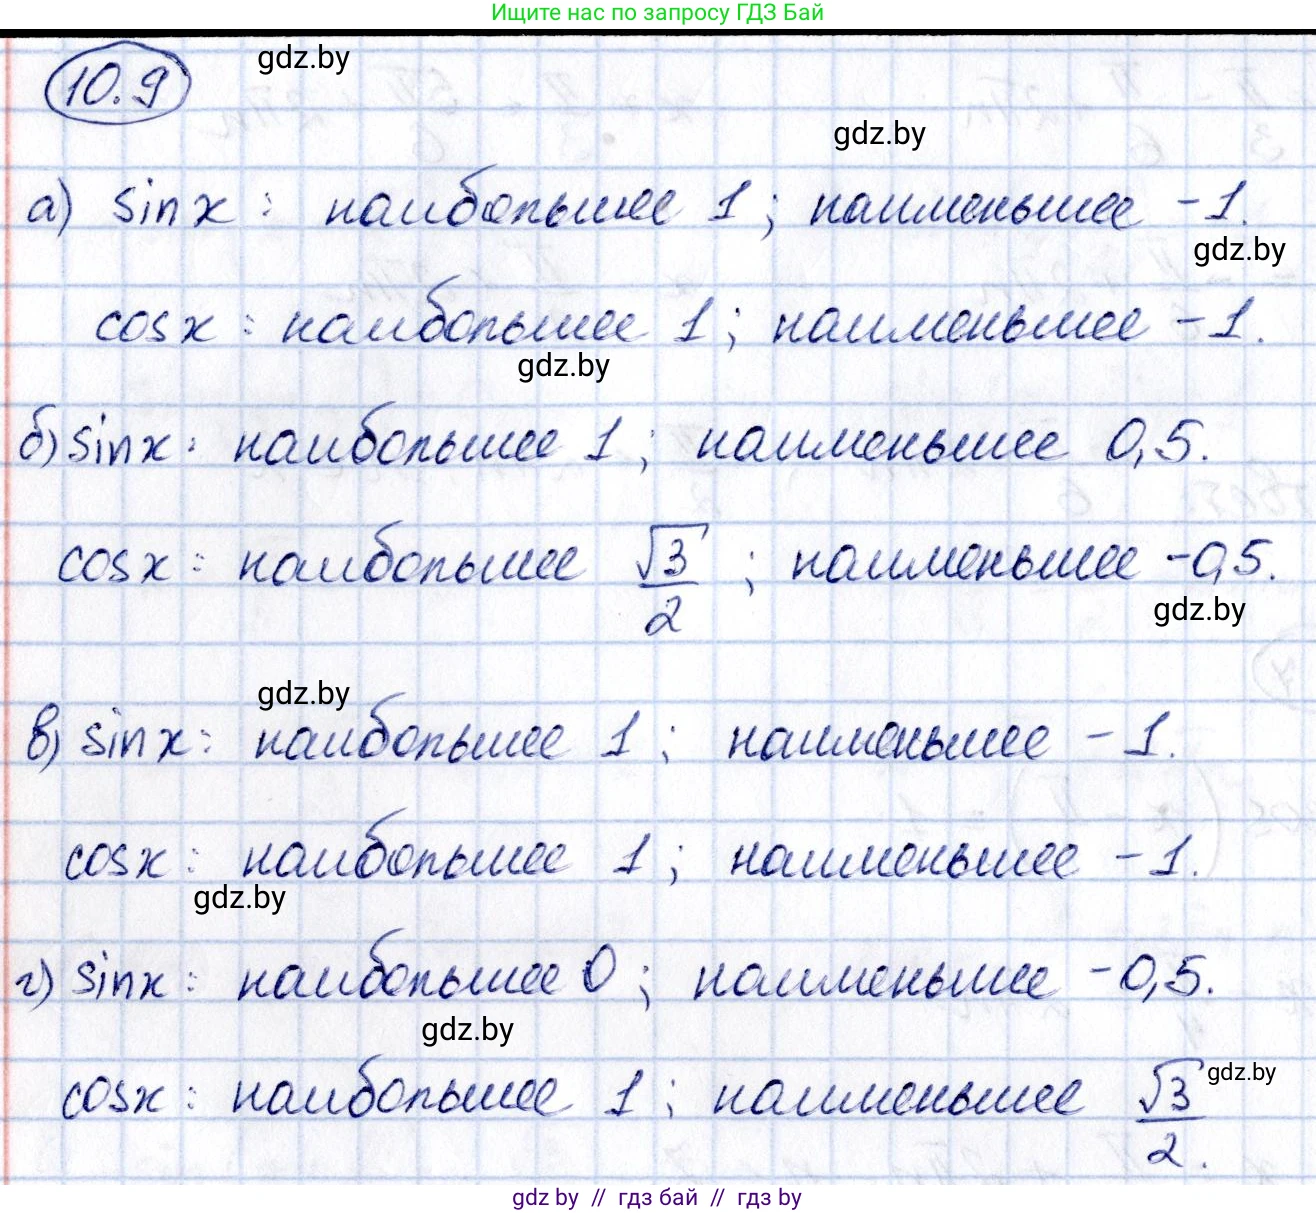 Ищите нас по запросу ГДЗ Бай
10.9
gdz.by
gdz.by
а) sin x : наибольшее 1 ; наименьшее -1.
gdz.by
cos x : наибольшее 1 ; наименьшее -1.
gdz.by
б) sin x : наибольшее 1 ; наименьшее 0,5.
cos x : наибольшее √3/2 ; наименьшее -0,5.
gdz.by
gdz.by
в) sin x : наибольшее 1 ; наименьшее -1.
cos x : наибольшее 1 ; наименьшее -1.
gdz.by
г) sin x : наибольшее 0 ; наименьшее -0,5.
gdz.by
cos x : наибольшее 1 ; наименьшее √3/2.
gdz.by
gdz by // гдз бай // гдз by